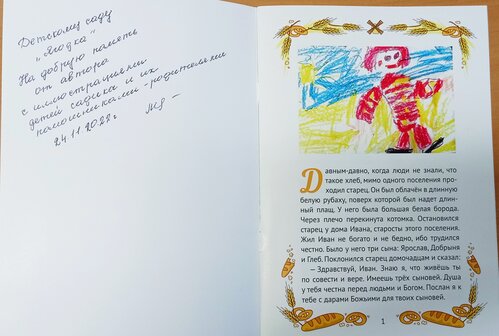 Детскому саду
"Ягодка"
На добрую память
от автора
с иллюстрациями
детей садика и их
помошниками - родителями
24.11.2022г
Давным-давно, когда люди не знали, что
такое хлеб, мимо одного поселения про-
ходил старец. Он был облачён в длинную
белую рубаху, поверх которой был надет длин-
ный плащ. У него была большая белая борода.
Через плечо перекинута котомка. Остановился
старец у дома Ивана, старосты этого поселения.
Жил Иван не богато и не бедно, ибо трудился
честно. Было у него три сына: Ярослав, Добрыня
и Глеб. Поклонился старец домочадцам и сказал:
— Здравствуй, Иван. Знаю я, что живёшь ты
по совести и вере. Имеешь трёх сыновей. Душа
у тебя честна перед людьми и Богом. Послан я к
тебе с дарами Божьими для твоих сыновей.
1